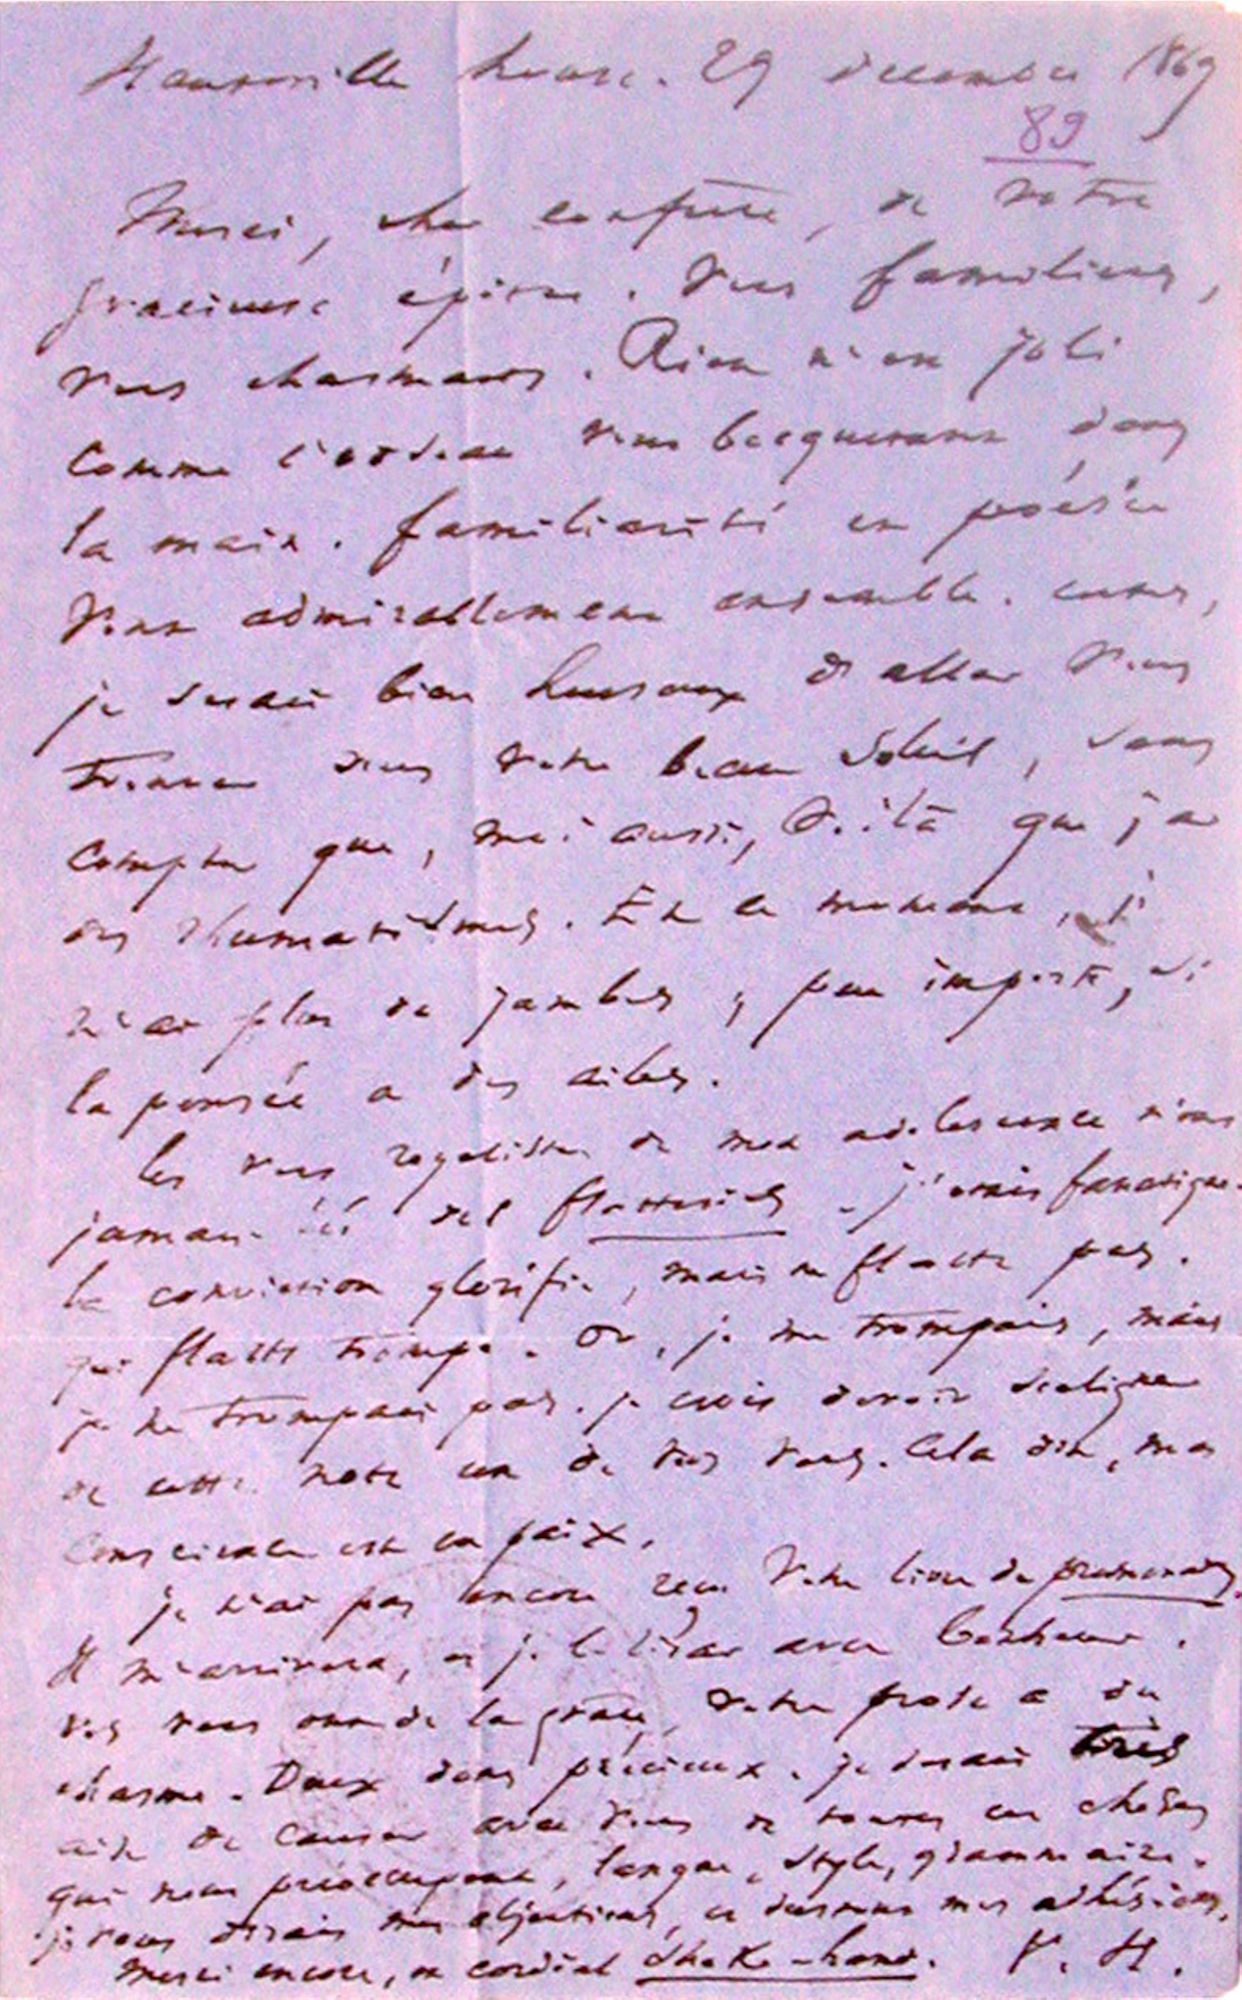 Hauteville house. 29 décembre 1869
89
Merci, cher confrère, de votre
gracieuse épitre. Vers familiers,
vers charmants. Rien n'est joli
comme l'oiseau vous becquetant dans
la main. familiarité et poésie
vont admirablement ensemble. certes,
je serais bien heureux d'aller vous
trouver sous votre beau soleil, sans
compter que, moi aussi, voilà que j'ai
des rhumatismes. En ce moment, je
n'ai plus de jambes ; peu importe, si
la pensée a des ailes.
les vers royalistes de mon adolescence n'ont
jamais été des flatteries. j'étais fanatique.
la conviction glorifie, mais ne flatte pas.
qui flatte trompe. Or, je me trompais, mais
je ne trompais pas. je crois devoir souligner
de cette note un de vos vers. Cela dit, ma
conscience est en paix.
je n'ai pas encore reçu votre livre de promenades.
Il m'arrivera, et je le lirai avec bonheur.
vos vers ont de la grâce, votre prose a du
charme. Deux dons précieux. je serais très
aise de causer avec vous de toutes ces choses
qui nous préoccupent, langue, style, grammaire.
je vous dirais mes objections, et surtout mes adhésions.
merci encore, et cordial shake-hand. V. H.